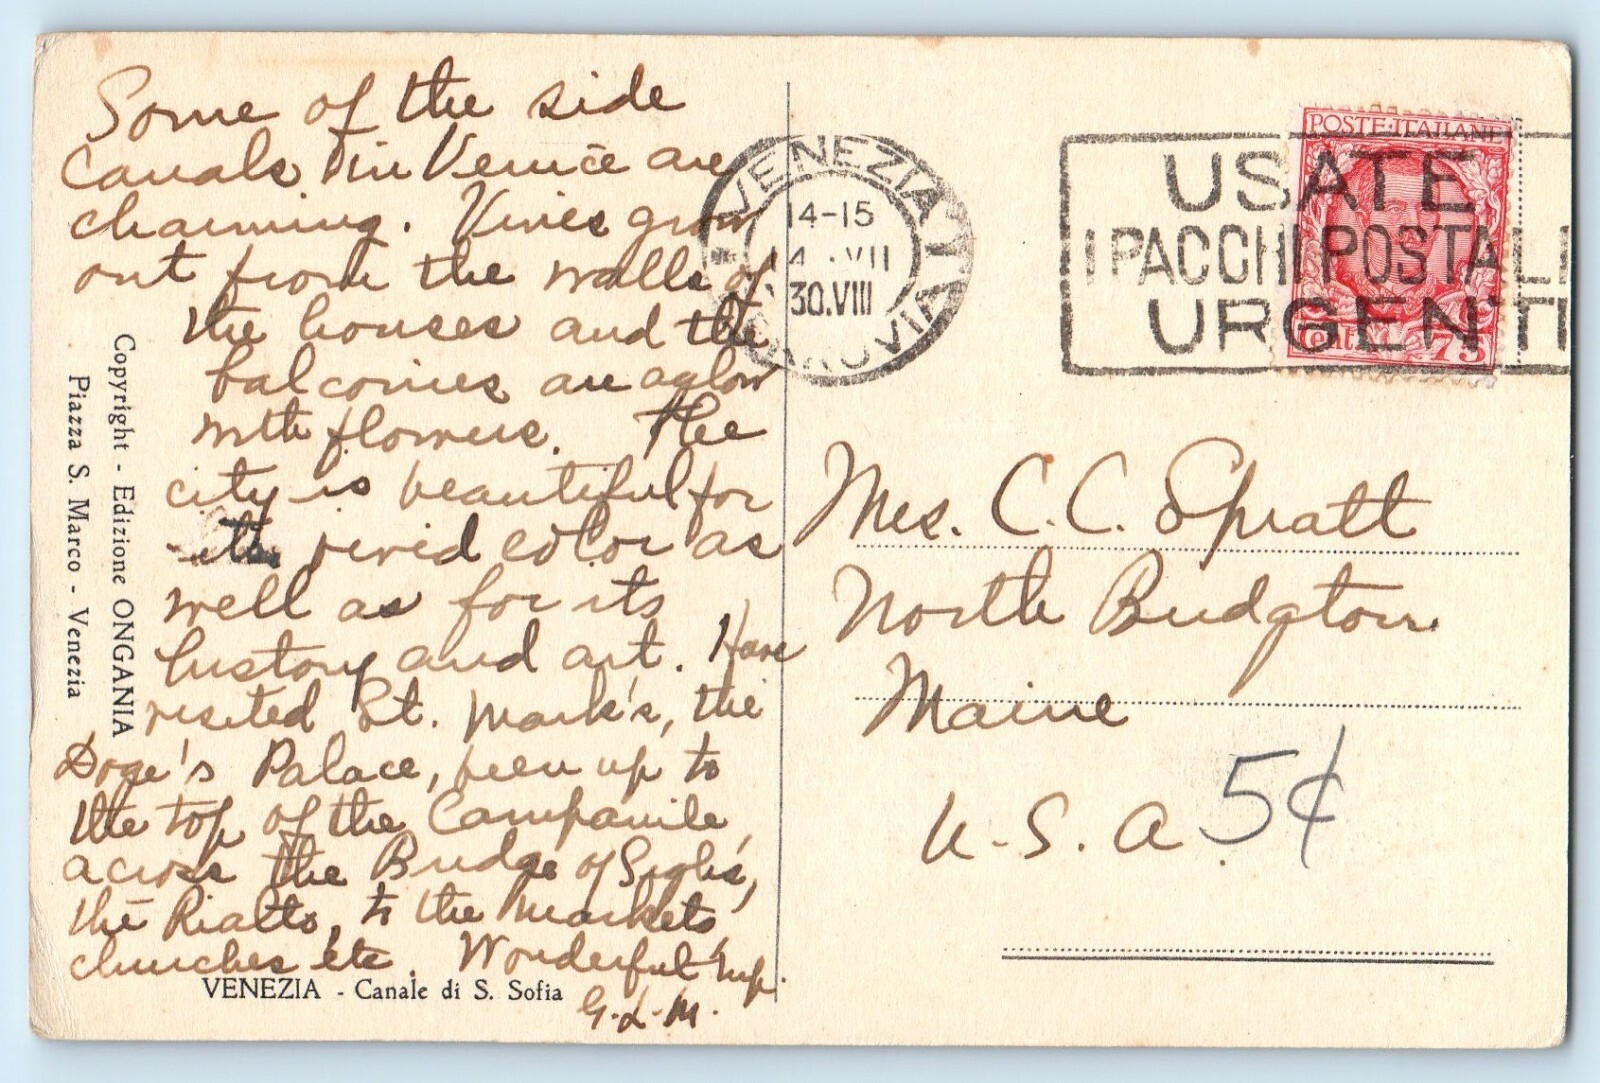 Some of the side
canals in Venice are
charming. Vines grow
out from the walls of
the houses and the
balconies are aglow
with flowers. The
city is beautiful for
its vivid color as
well as for its
history and art. Have
visited St. Mark's, the
Doge's Palace, been up to
the top of the Campanile,
across the Bridge of Sighs,
the Rialto, to the markets,
churches etc. Wonderful trip.
G. L. M.
Copyright - Edizione ONGANIA
Piazza S. Marco - Venezia
VENEZIA - Canale di S. Sofia
VENEZIA
14-15
30.VIII
FERROVIA
POSTE·ITALIANE
75
USATE
I PACCHI POSTALI
URGENTI
Mrs. C. C. Spratt
North Bridgton
Maine
U. S. A.
5¢